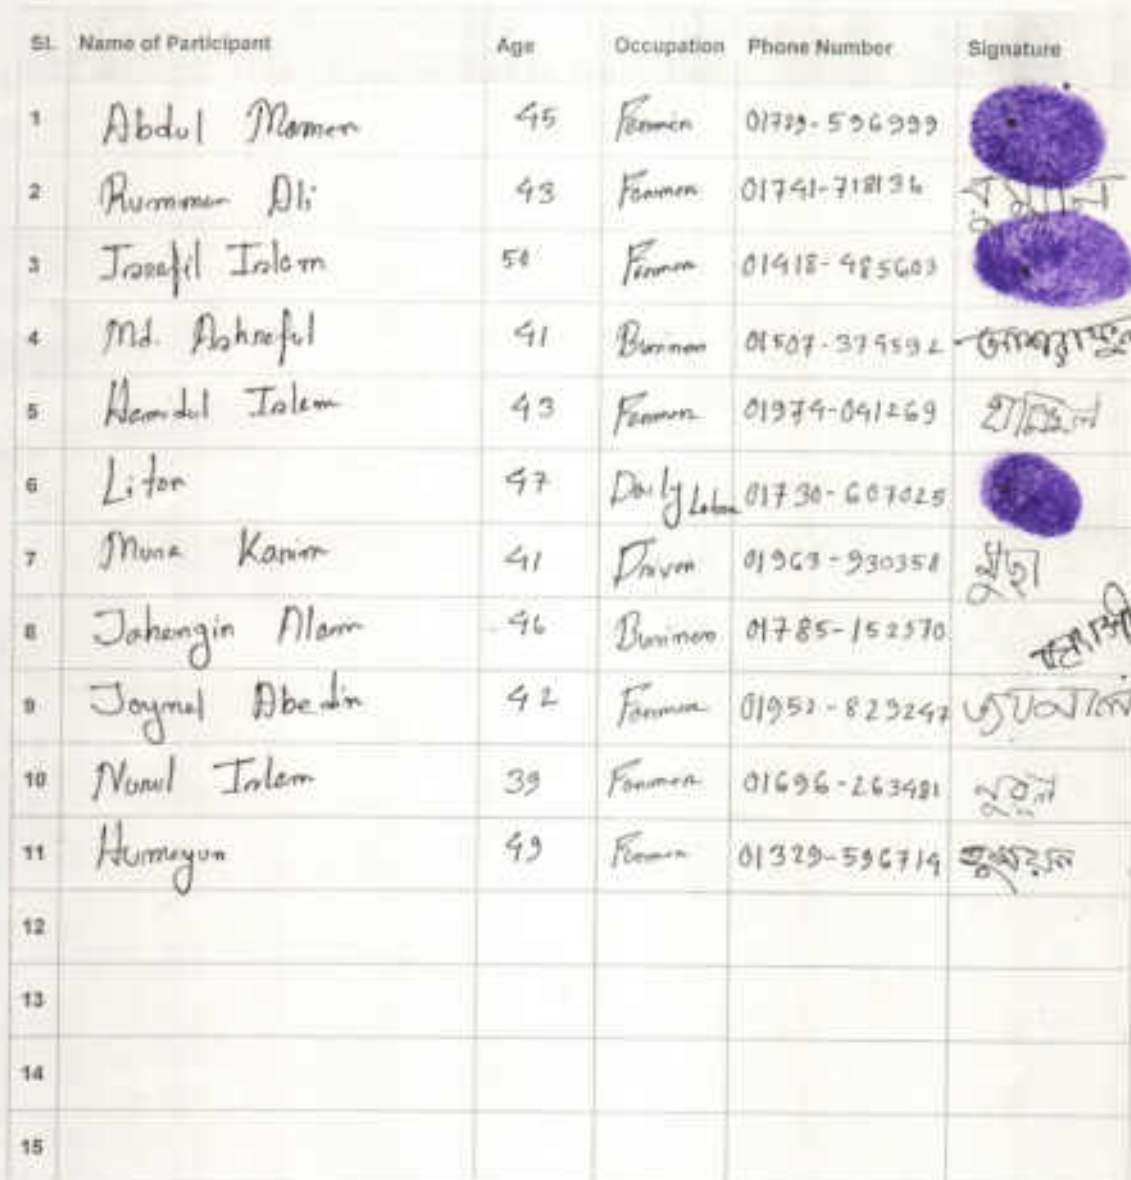 Sl. Name of Participant Age Occupation Phone Number Signature
1 Abdul Momen 45 Farmer 01729-596999
2 Rummon Ali 43 Farmer 01741-718136
3 Israfil Islam 50 Farmer 01918-485603
4 Md. Ashraful 41 Business 01507-379592
5 Hamidul Islam 43 Farmer 01974-041269
6 Liton 47 Daily Labor 01730-607025
7 Musa Karim 41 Driver 01963-930358
8 Jahangir Alam 46 Business 01785-152570
9 Joynal Abedin 42 Farmer 01952-829247
10 Nurul Islam 39 Farmer 01696-263481
11 Humayun 49 Farmer 01329-596714
12
13
14
15